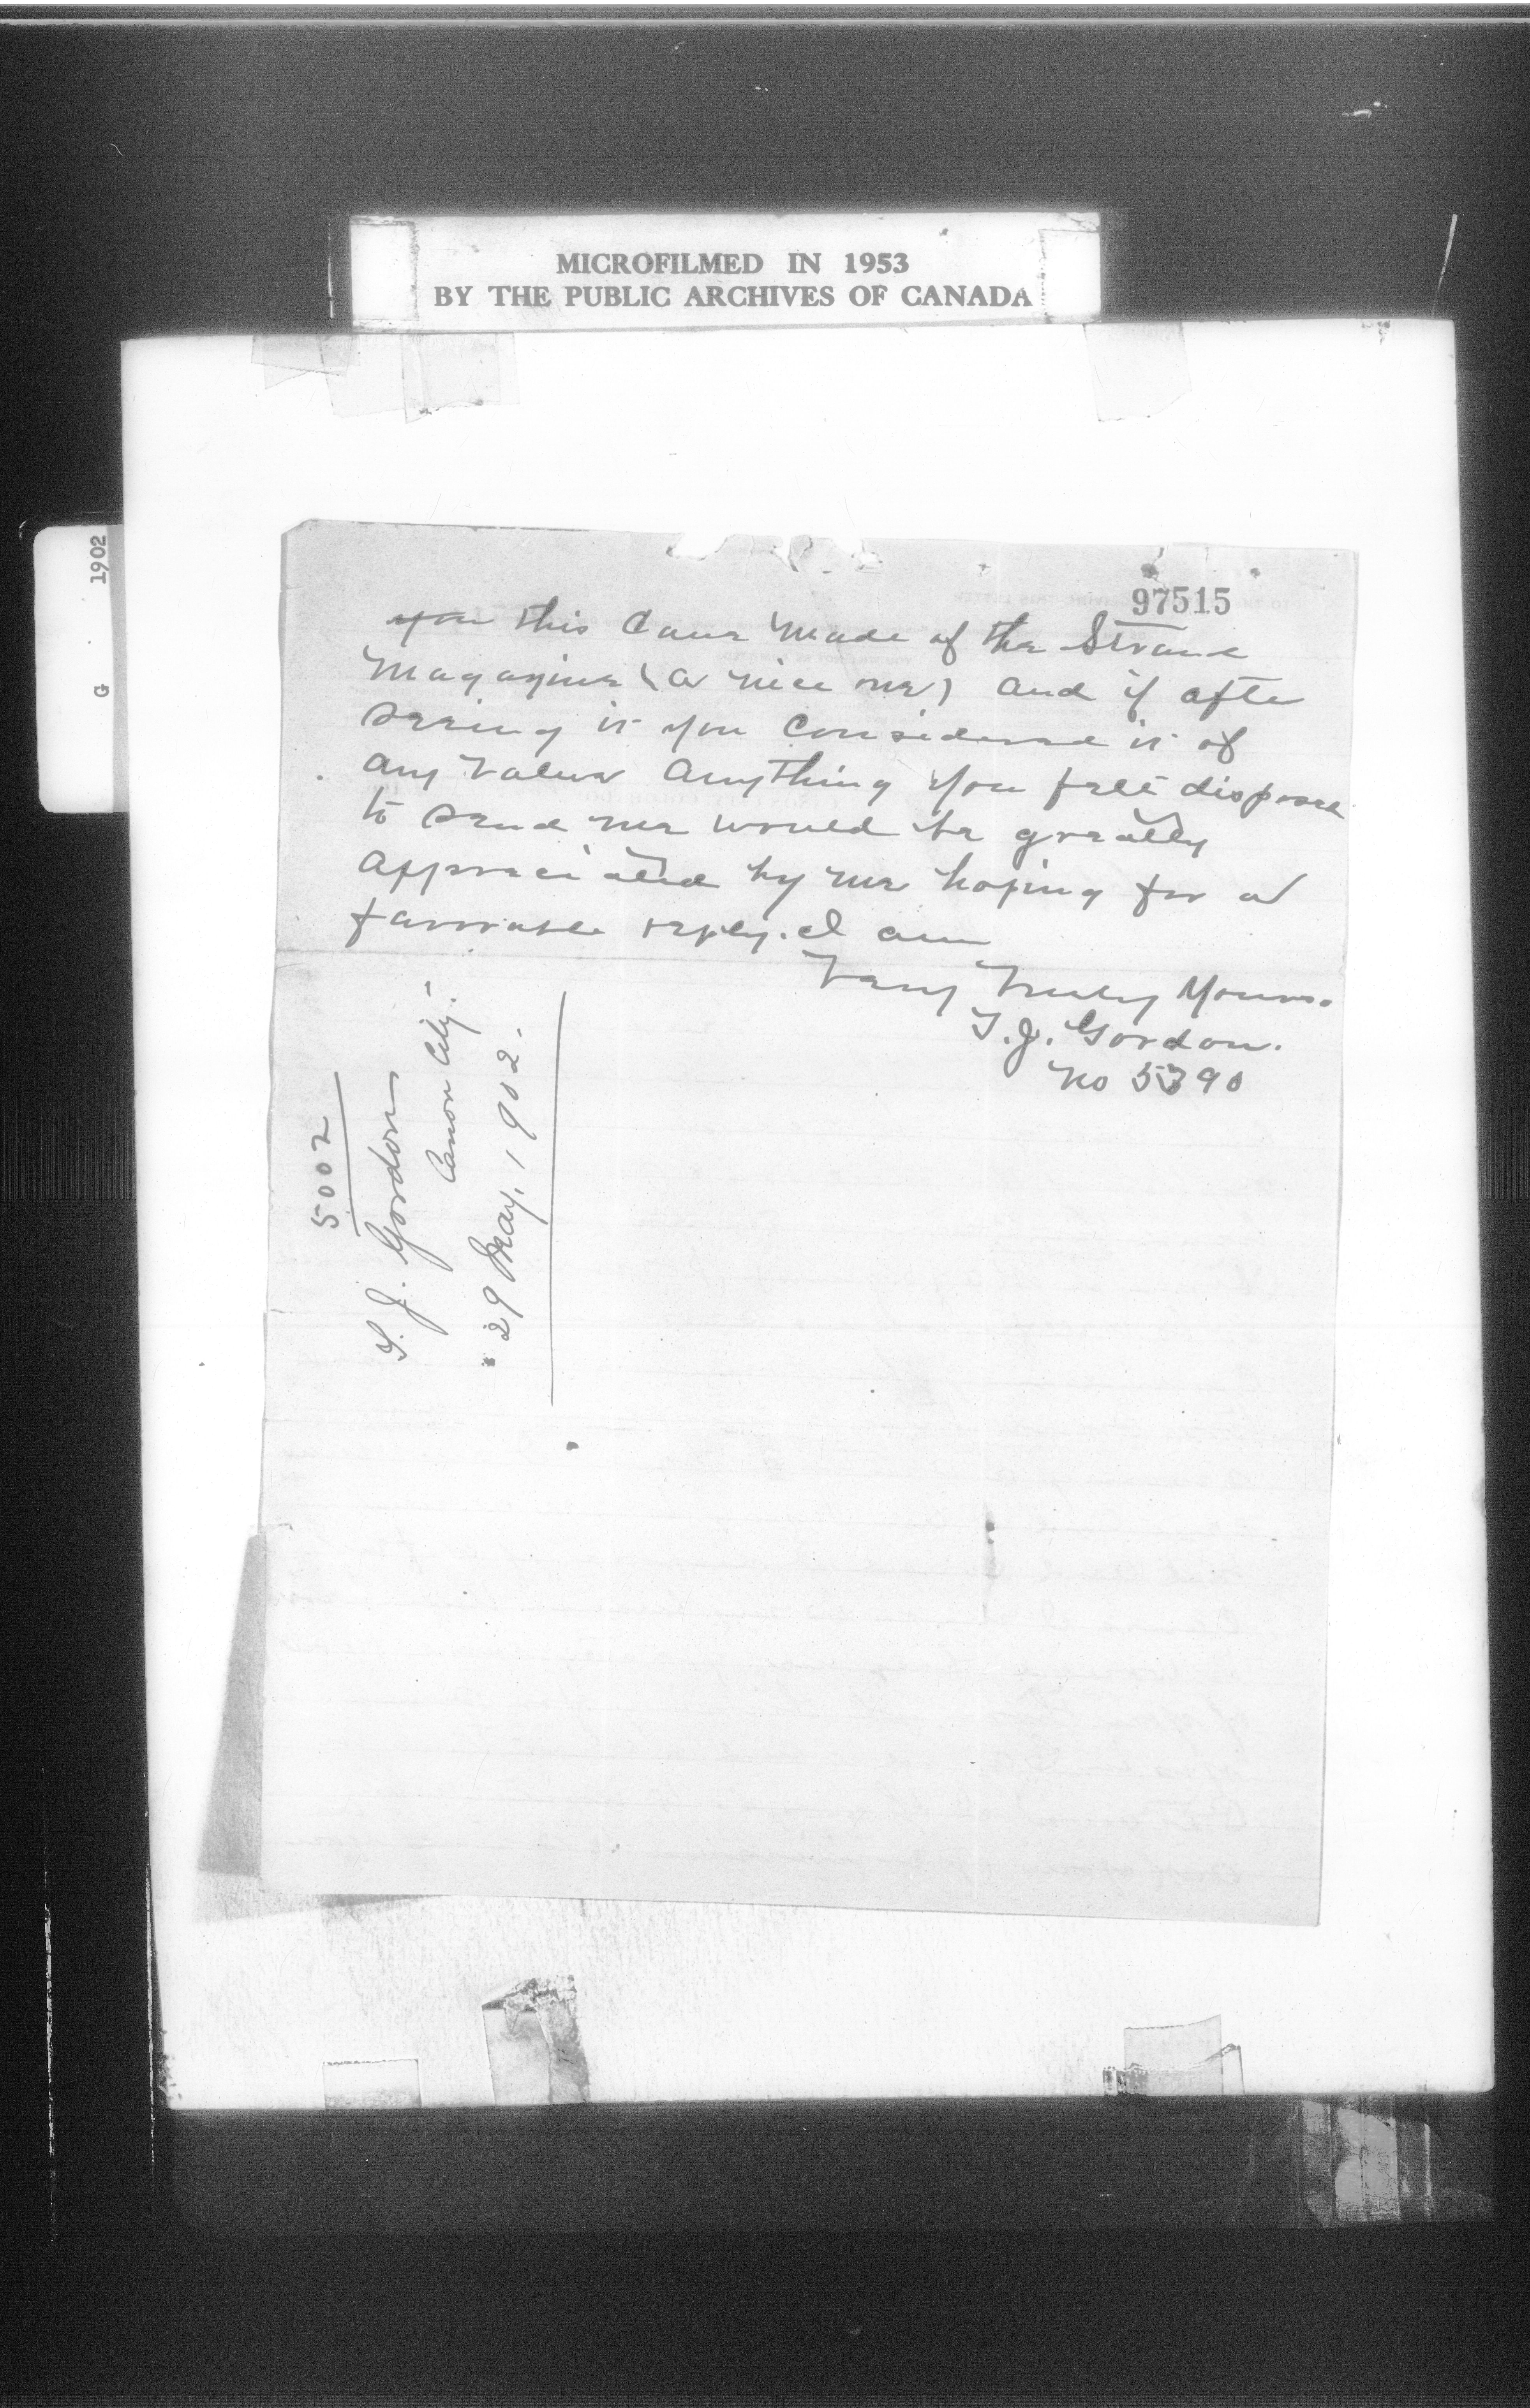 MICROFILMED IN 1953
BY THE PUBLIC ARCHIVES OF CANADA
1902
G
97515
you this Cane made of the Strand
Magazine (a nice one) and if after
seeing it you considered it of
any value anything you felt disposed
to send me would be greatly
appreciated by me hoping for a
favorable reply. I am
Very Truly Yours.
T. J. Gordon.
No 5390
5002
T. J. Gordon
Canon City.
29 May, 1902.